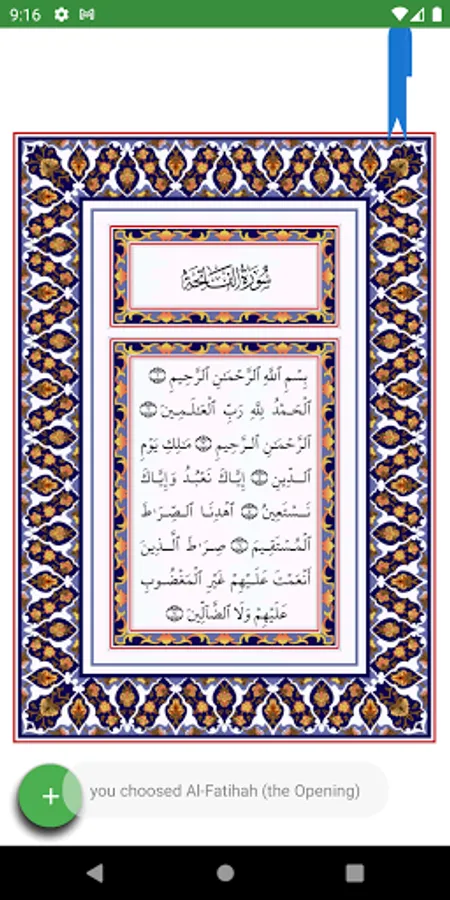 9:16
سُورَةُ الفَاتِحَةِ
بِسْمِ ٱللَّهِ ٱلرَّحْمَٰنِ ٱلرَّحِيمِ
ٱلْحَمْدُ لِلَّهِ رَبِّ ٱلْعَٰلَمِينَ
ٱلرَّحْمَٰنِ ٱلرَّحِيمِ مَٰلِكِ يَوْمِ
ٱلدِّينِ إِيَّاكَ نَعْبُدُ وَإِيَّاكَ
نَسْتَعِينُ ٱهْدِنَا ٱلصِّرَٰطَ
ٱلْمُسْتَقِيمَ صِرَٰطَ ٱلَّذِينَ
أَنْعَمْتَ عَلَيْهِمْ غَيْرِ ٱلْمَغْضُوبِ
عَلَيْهِمْ وَلَا ٱلضَّآلِّينَ
+
you choosed Al-Fatihah (the Opening)